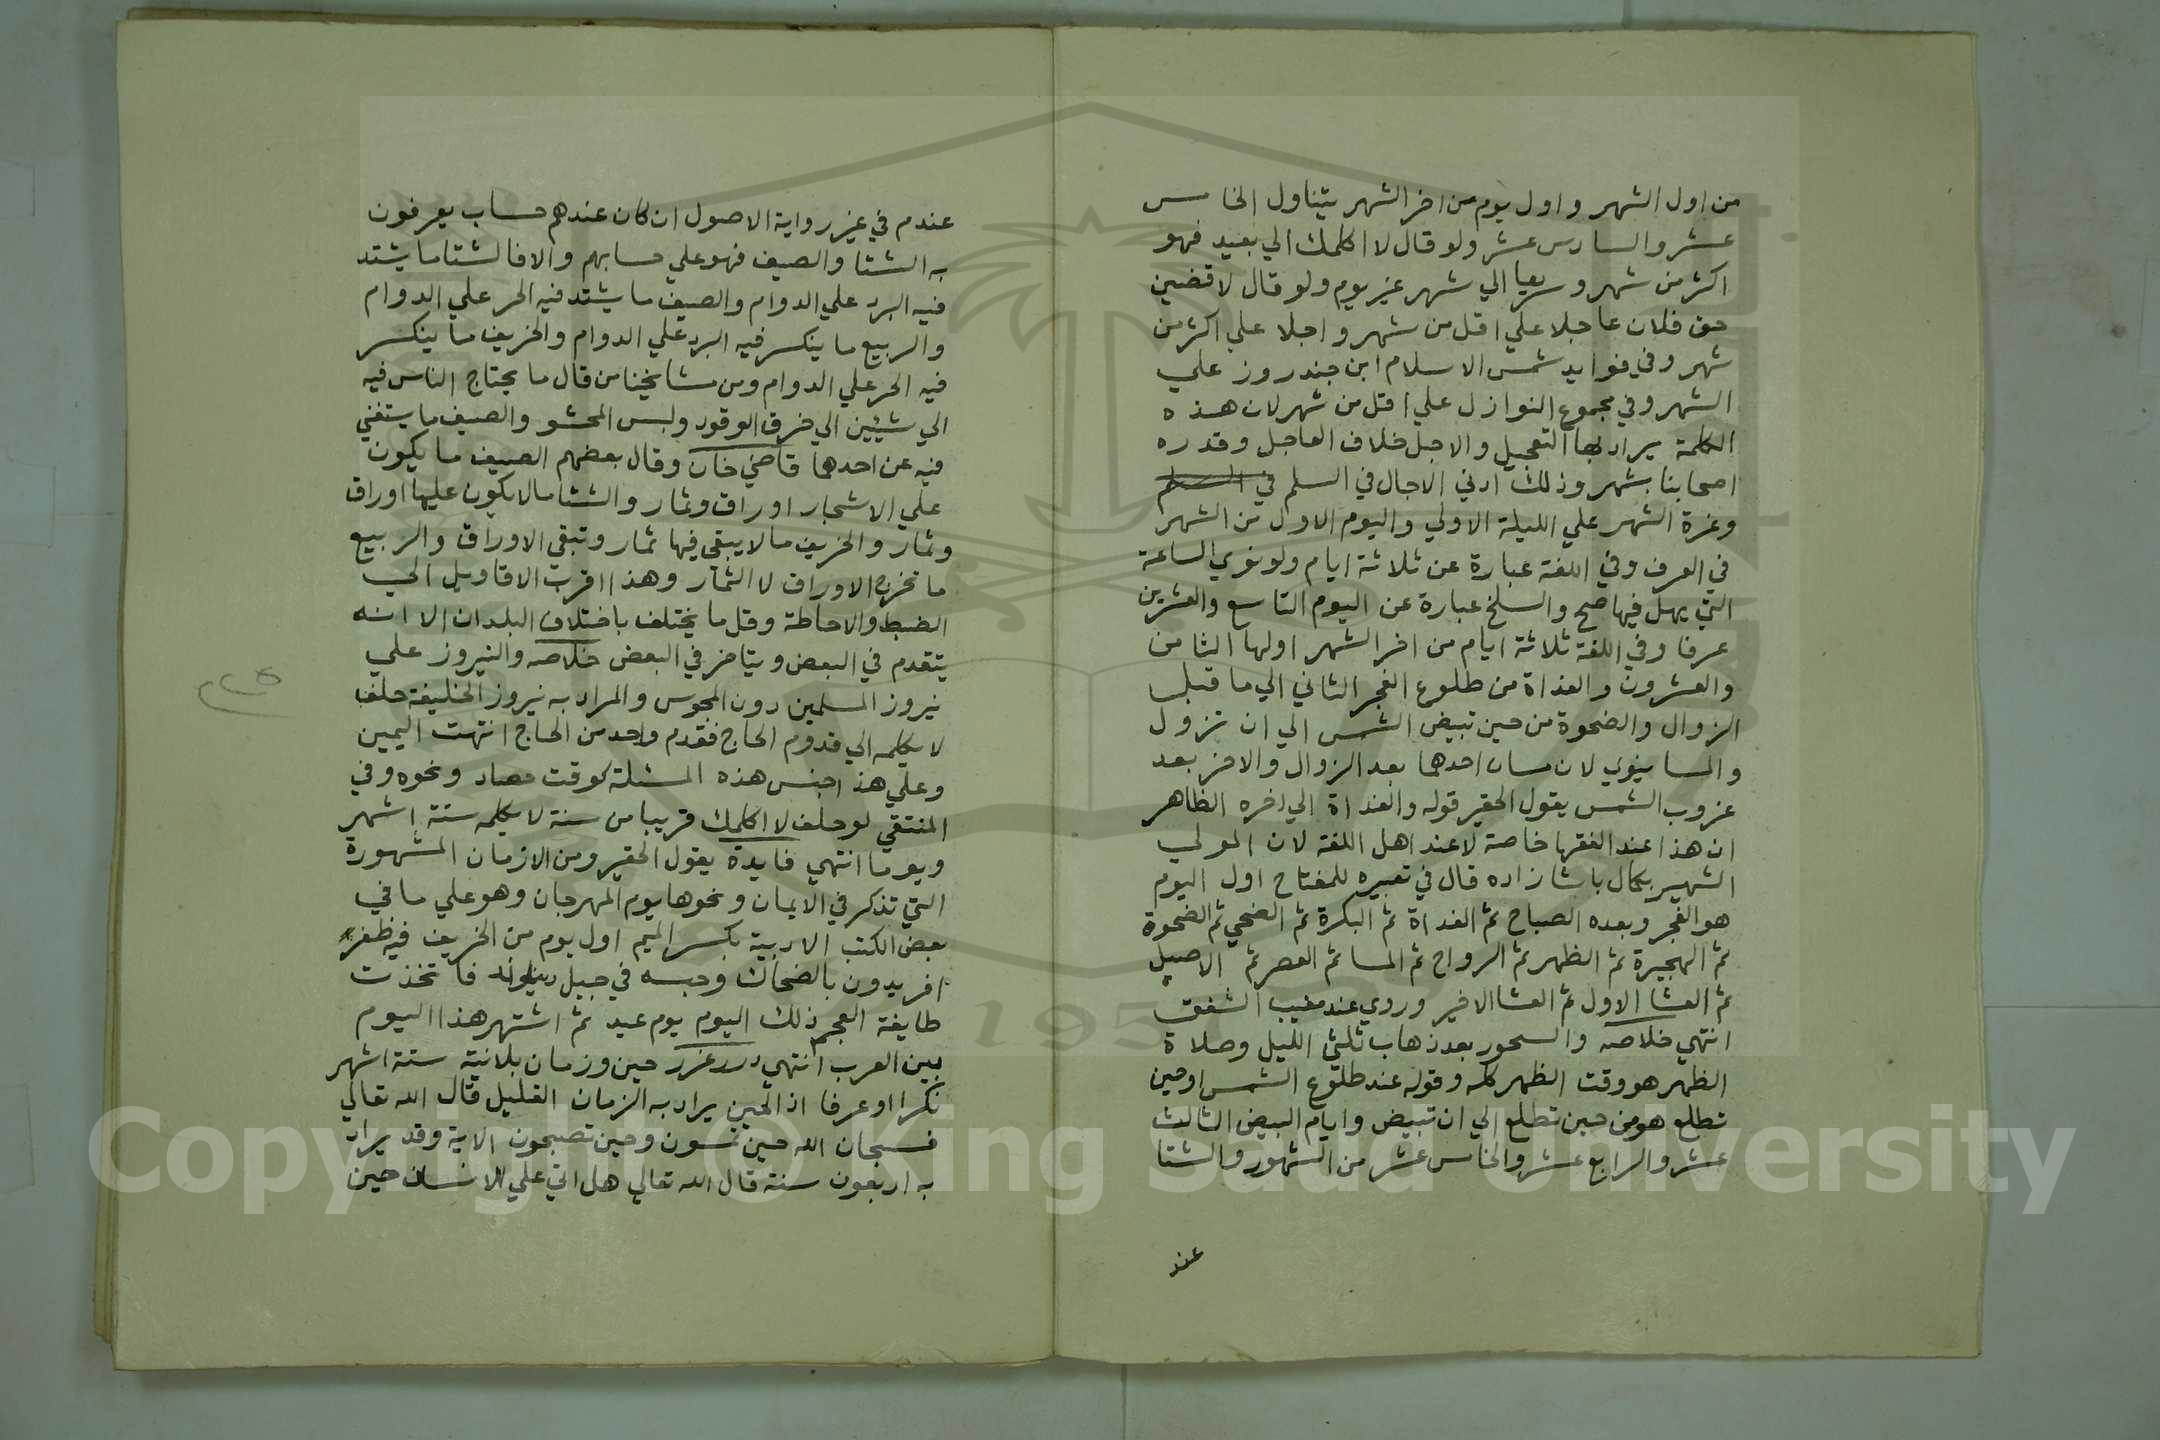 من اول الشهر واول يوم من اخر الشهر يتناول الخامس
عشر والسادس عشر ولو قال لا اكلمك الي بعيد فهو
اكثر من شهر وسريعا الي شهر غير يوم ولو قال لاقضين
حق فلان عاجلا علي اقل من شهر واجلا علي اكثر من
شهر وفي فوايد شمس الاسلام ابن جندروز علي
الشهر وفي مجموع النوازل علي اقل من شهر لان هذه
الكلمة يراد بها التعجيل والاجل خلاف العاجل وقدره
اصحابنا بشهر وذلك ادني الاجال في السلم في السلم
وغرة الشهر علي الليلة الاولي واليوم الاول من الشهر
في العرف وفي اللغة عبارة عن ثلاثة ايام ولو نوي الساعة
التي يهل فيها صح والسلخ عبارة عن اليوم التاسع والعشرين
عرفا وفي اللغة ثلاثة ايام من اخر الشهر اولها الثامن
والعشرون والغداة من طلوع الفجر الثاني الي ما قبل
الزوال والضحوة من حين تبيض الشمس الي ان تزول
والمسا ينوي لان مساا احدهما بعد الزوال والاخر بعد
غروب الشمس يقول الحقير قوله والغداة الي اخره الظاهر
ان هذا عند الفقها خاصة لا عند اهل اللغة لان المولي
الشهير بكمال باشا زاده قال في تغييره للمفتاح اول اليوم
هو الفجر وبعده الصباح ثم الغداة ثم البكرة ثم الضحي ثم الضحوة
ثم الهجيرة ثم الظهر ثم الرواح ثم المسا ثم العصر ثم الاصيل
ثم العشا الاول ثم العشا الاخير وروي عند مغيب الشفق
انتهي خلاصه والسحور بعد ذهاب ثلثي الليل وصلاة
الظهر هو وقت الظهر كله وقوله عند طلوع الشمس او حين
تطلع هو من حين تطلع الي ان تبيض وايام البيض الثالث
عشر والرابع عشر والخامس عشر من الشهور والشتا
عند
عندم في غير رواية الاصول ان كان عندهم حساب يعرفون
به الشتا والصيف فهو علي حسابهم والا فالشتا ما يشتد
فيه البرد علي الدوام والصيف ما يشتد فيه الحر علي الدوام
والربيع ما ينكسر فيه البرد علي الدوام والخريف ما ينكسر
فيه الحر علي الدوام ومن مشايخنا من قال ما يحتاج الناس فيه
الي شيئين الي خرق الوقود ولبس المحشو والصيف ما يستغني
فيه عن احدهما قاضي خان وقال بعضهم الصيف ما يكون
علي الاشجار اوراق وثمار والشتا ما لا يكون عليها اوراق
وثمار والخريف ما لا يبقي فيها ثمار وتبقي الاوراق والربيع
ما تخرج الاوراق لا الثمار وهذا اقرب الاقاويل الي
الضبط والاحاطة وقل ما يختلف باختلاف البلدان الا انه
يتقدم في البعض ويتاخر في البعض خلاصه والنيروز علي
نيروز المسلمين دون المجوس والمراد به نيروز الخليفة حلف
لا يكلمه الي قدوم الحاج فقدم واحد من الحاج انتهت اليمين
وعلي هذا جنس هذه المسئلة كوقت حصاد ونحوه وفي
المنتقي لو حلف لا اكلمك قريبا من سنة لا يكلمه ستة اشهر
ويوما انتهي فايدة يقول الحقير ومن الازمان المشهورة
التي تذكر في الايمان ونحوها يوم المهرجان وهو علي ما في
بعض الكتب الادبية بكسر الميم اول يوم من الخريف فيه ظفر
افريدون بالضحاك وحبسه في جبل دنباوند فاتخذت
طايفة العجم ذلك اليوم يوم عيد ثم اشتهر هذا اليوم
بين العرب انتهي درر غرر حين وزمان بلانية ستة اشهر
نكرا او عرفا اذ الحين يراد به الزمان القليل قال الله تعالي
فسبحان الله حين تمسون وحين تصبحون الاية وقد يراد
به اربعون سنة قال الله تعالي هل اتي علي الانسان حين
Copyright © King Saud University
195